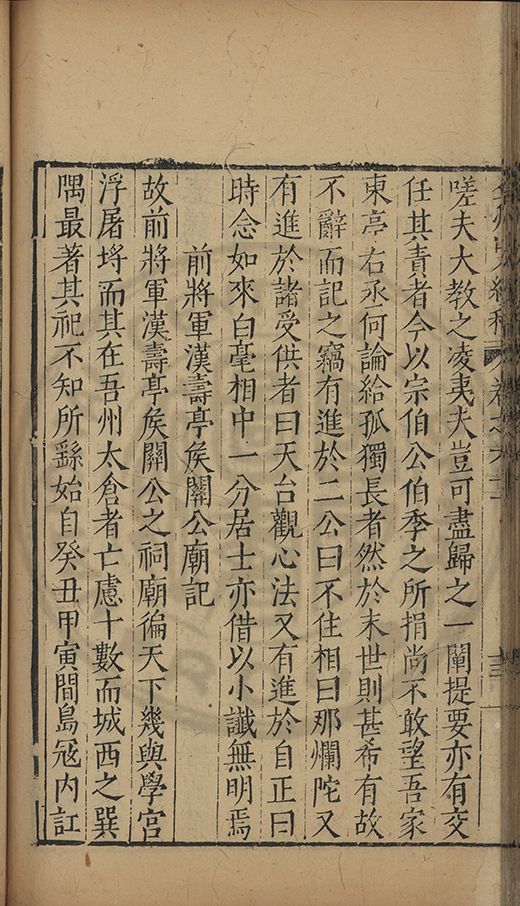 嗟夫大教之凌夷夫豈可盡歸之一闡提要亦有交
任其責者今以宗伯公伯季之所捐尚不敢望吾家
東亭右丞何論給孤獨長者然於末世則甚希有故
不辭而記之竊有進於二公曰不住相曰那爛陀又
有進於諸受供者曰天台觀心法又有進於自正曰
時念如來白毫相中一分居士亦借以小讖無明焉
前將軍漢壽亭矦關公廟記
故前將軍漢壽亭矦關公之祠廟徧天下幾與學宮
浮屠埒而其在吾州太倉者亡慮十數而城西之巽
隅最著其祀不知所繇始自癸丑甲寅間島冦內訌